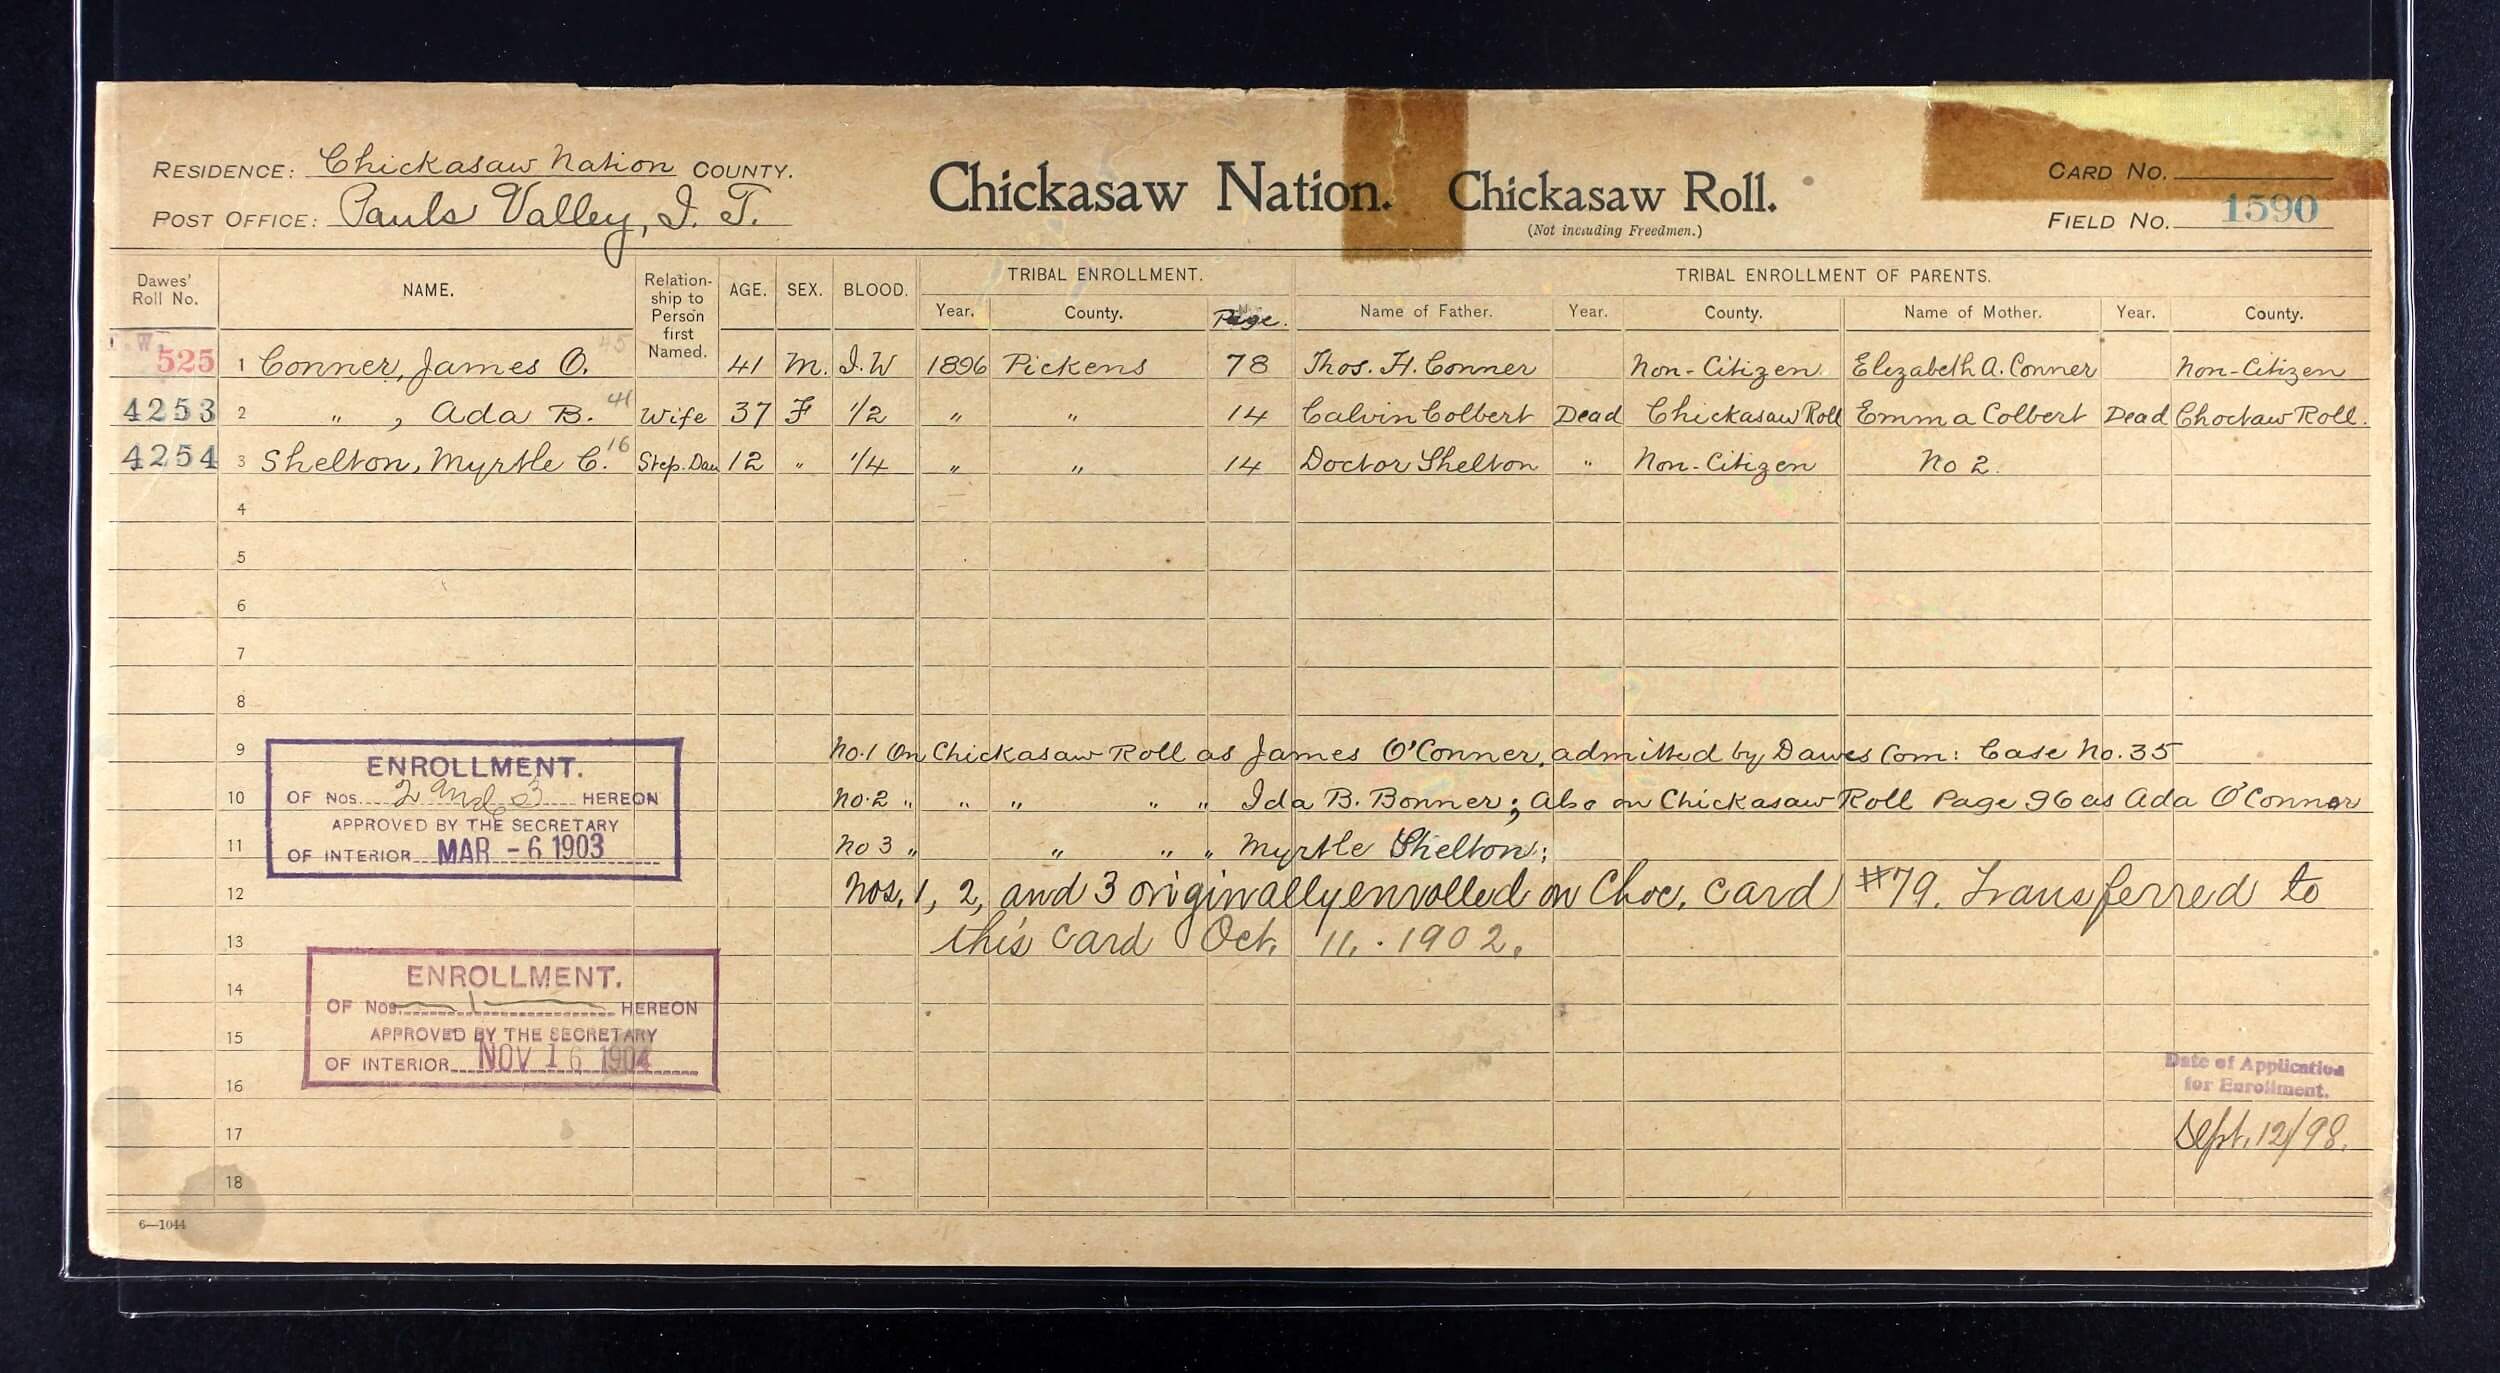 RESIDENCE: Chickasaw Nation COUNTY.
POST OFFICE: Pauls Valley, I. T.
Chickasaw Nation. Chickasaw Roll.
(Not including Freedmen.)
CARD No.
FIELD No. 1590
Dawes' Roll No. NAME. Relation-ship to Person first Named. AGE. SEX. BLOOD. TRIBAL ENROLLMENT. TRIBAL ENROLLMENT OF PARENTS.
Year. County. Page. Name of Father. Year. County. Name of Mother. Year. County.
I.W. 525 1 Conner, James O. 45 41 M. I.W 1896 Pickens 78 Thos. H. Conner Non-Citizen Elizabeth A. Conner Non-Citizen
4253 2 " , Ada B. 41 Wife 37 F 1/2 " " 14 Calvin Colbert Dead Chickasaw Roll Emma Colbert Dead Choctaw Roll.
4254 3 Shelton, Myrtle C. 16 Step. Dau 12 " 1/4 " " 14 Doctor Shelton " Non-Citizen No 2.
4
5
6
7
8
9 No.1 On Chickasaw Roll as James O'Conner, admitted by Dawes Com: Case No. 35
10 No.2 " " " " " Ida B. Bonner; Also on Chickasaw Roll Page 96 as Ada O'Conner
11 No 3 " " " " Myrtle Shelton;
12 Nos. 1, 2, and 3 originally enrolled on Choc. card #79. Transferred to
13 this card Oct. 11, 1902.
14
15
16
17
18
ENROLLMENT.
OF NOS. 2 and 3 HEREON
APPROVED BY THE SECRETARY
OF INTERIOR MAR -6 1903
ENROLLMENT.
OF NOS. 1 HEREON
APPROVED BY THE SECRETARY
OF INTERIOR NOV 16 1904
Date of Application
for Enrollment.
Sept. 12/98.
6—1044